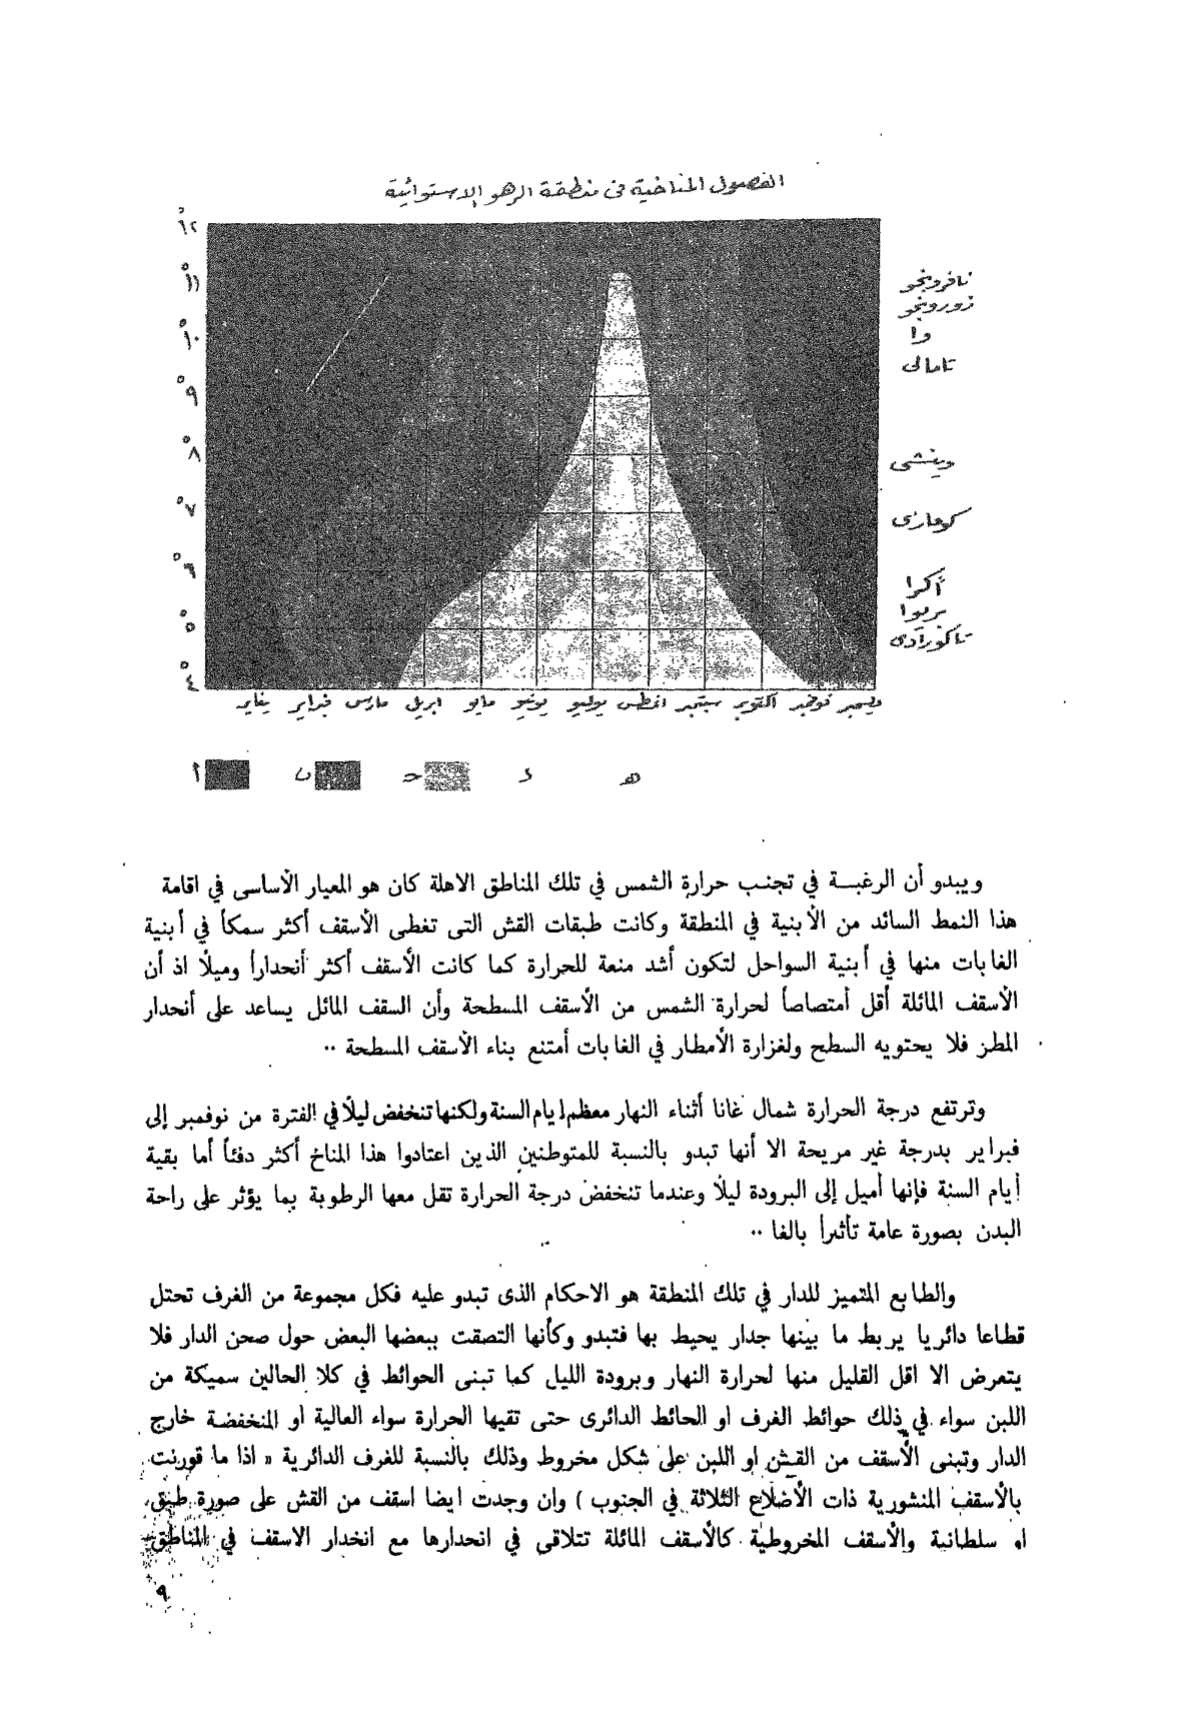 الفصول المناخية في منطقة الرهو الاستوائية
°١٢
°١١
°١٠
°٩
°٨
°٧
°٦
°٥
°٤
نافرونجو
زورونجو
وا
تامالى
وينشى
كومازى
أكرا
بريوا
تاكورادى
يناير فبراير مارس ابريل مايو يونيو يوليو اغطس سبتمبر اكتوبر نوفمبر ديسمبر
أ ب حـ د هـ
ويبدو أن الرغبـــة في تجنب حرارة الشمس في تلك المناطق الاهلة كان هو المعيار الأساسى في اقامة
هذا النمط السائد من الأبنية في المنطقة وكانت طبقات القش التى تغطى الأسقف أكثر سمكاً في أبنية
الغابات منها في أبنية السواحل لتكون أشد منعة للحرارة كما كانت الأسقف أكثر أنحداراً وميلاً اذ أن
الأسقف المائلة أقل أمتصاصاً لحرارة الشمس من الأسقف المسطحة وأن السقف المائل يساعد على أنحدار
المطر فلا يحتويه السطح ولغزارة الأمطار في الغابات أمتنع بناء الأسقف المسطحة ..
وترتفع درجة الحرارة شمال غانا أثناء النهار معظم ايام السنة ولكنها تنخفض ليلاً في الفترة من نوفمبر إلى
فبراير بدرجة غير مريحة الا أنها تبدو بالنسبة للمتوطنين الذين اعتادوا هذا المناخ أكثر دفئاً أما بقية
أيام السنة فإنها أميل إلى البرودة ليلاً وعندما تنخفض درجة الحرارة تقل معها الرطوبة بما يؤثر على راحة
البدن بصورة عامة تأثيراً بالغا ..
والطابع المتميز للدار في تلك المنطقة هو الاحكام الذى تبدو عليه فكل مجموعة من الغرف تحتل
قطاعا دائريا يربط ما بينها جدار يحيط بها فتبدو وكأنها التصقت ببعضها البعض حول صحن الدار فلا
يتعرض الا اقل القليل منها لحرارة النهار وبرودة الليل كما تبنى الحوائط في كلا الحالين سميكة من
اللبن سواء في ذلك حوائط الغرف او الحائط الدائرى حتى تقيها الحرارة سواء العالية او المنخفضة خارج
الدار وتبنى الأسقف من القش او اللبن على شكل مخروط وذلك بالنسبة للغرف الدائرية « اذا ما قورنت
بالأسقف المنشورية ذات الأضلاع الثلاثة في الجنوب ) وان وجدت ايضا اسقف من القش على صورة طبق
او سلطانية والأسقف المخروطية كالأسقف المائلة تتلاقى في انحدارها مع انخدار الاسقف في المناطق
٩